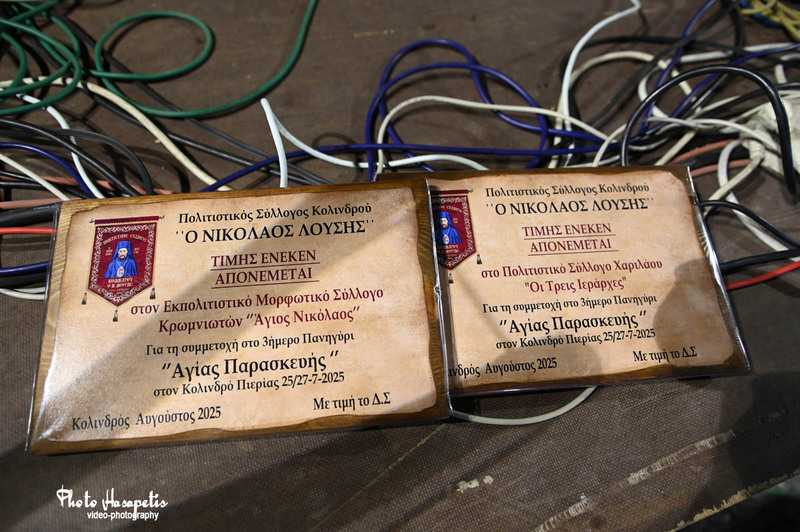 Πολιτιστικός Σύλλογος Κολινδρού
''Ο ΝΙΚΟΛΑΟΣ ΛΟΥΣΗΣ''
ΤΙΜΗΣ ΕΝΕΚΕΝ
ΑΠΟΝΕΜΕΤΑΙ
στον Εκπολιτιστικό Μορφωτικό Σύλλογο
Κρωμνιωτών ''Άγιος Νικόλαος''
Για τη συμμετοχή στο 3ήμερο Πανηγύρι
''Αγίας Παρασκευής ''
στον Κολινδρό Πιερίας 25/27-7-2025
Κολινδρός Αυγούστος 2025
Με τιμή το Δ.Σ
Πολιτιστικός Σύλλογος Κολινδρού
''Ο ΝΙΚΟΛΑΟΣ ΛΟΥΣΗΣ''
ΤΙΜΗΣ ΕΝΕΚΕΝ
ΑΠΟΝΕΜΕΤΑΙ
στο Πολιτιστικό Σύλλογο Χαριλάου
"Οι Τρεις Ιεράρχες"
Για τη συμμετοχή στο 3ήμερο Πανηγύρι
''Αγίας Παρασκευής ''
στον Κολινδρό Πιερίας 25/27-7-2025
νδρός Αυγούστος 2025
Με τιμή το Δ.Σ
Photo Hasapetis
video-photography